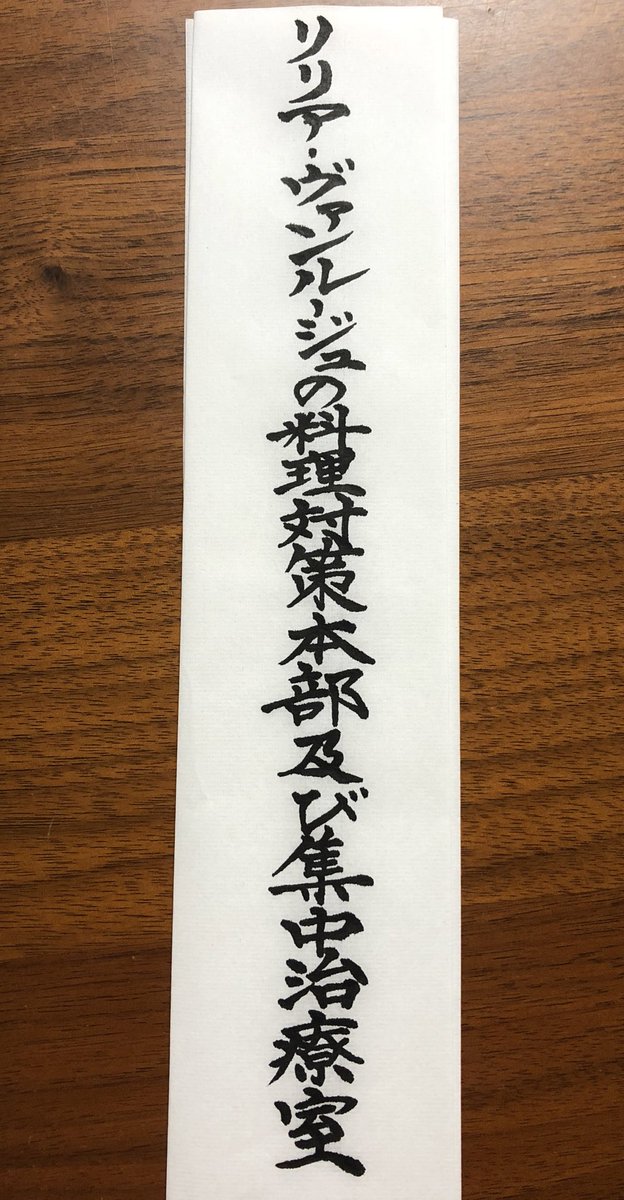 リリア・ヴァンルージュの料理対策本部及び集中治療室